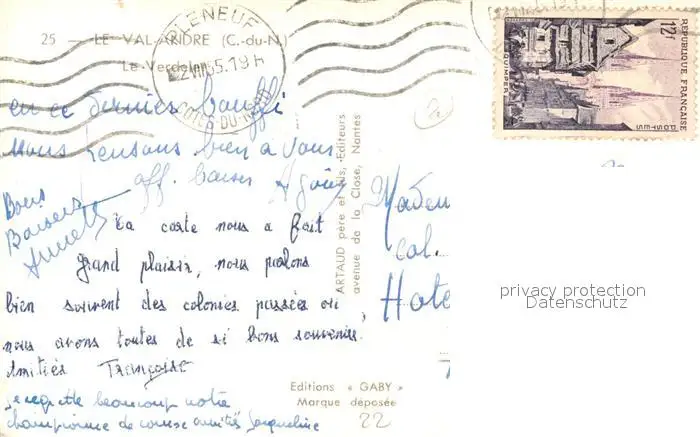 PLENEUF
25 — LE VAL-ANDRE (C.-du-N.)
Le Verdelet
CÔTES-DU-NORD
REPUBLIQUE FRANÇAISE
12F
POSTES
QUIMPER
en ce dernier
nous pensons bien à vous
aff. baisers
Bons
Baisers
Annette
La carte nous a fait
grand plaisir, nous parlons
bien souvent des colonies passées où
nous avons toutes de si bons souvenirs.
Amitiés Françoise
je regrette beaucoup notre
championne de course amitiés Jacqueline
ARTAUD père et fils, Editeurs
avenue de la Close, Nantes
Editions « GABY »
Marque déposée
22
Madem
Col.
Hote
privacy protection
Datenschutz